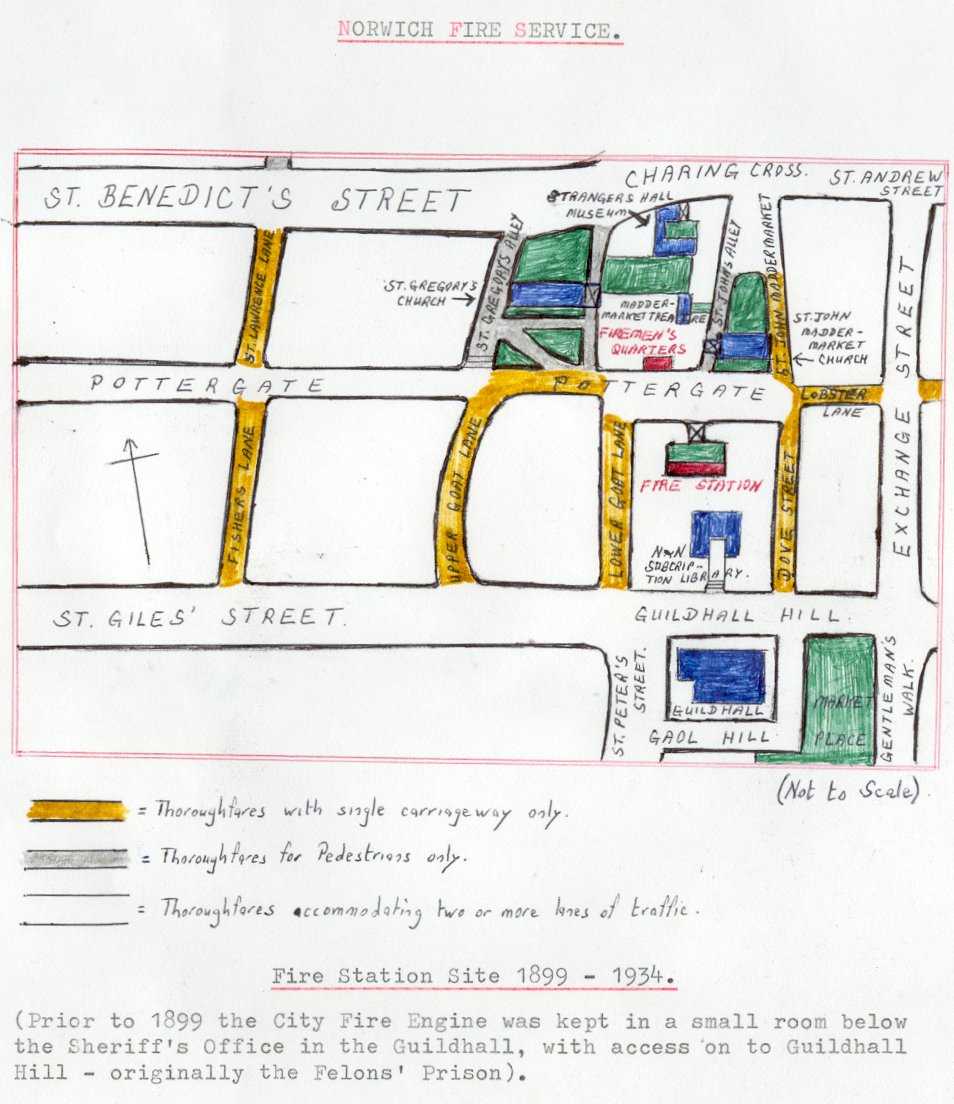 NORWICH FIRE SERVICE.
CHARING CROSS.
ST. ANDREW
STREET
ST. BENEDICT'S STREET
STRANGERS HALL
MUSEUM
ST. LAWRENCE LANE
ST. GREGORY'S ALLEY
ST. JOHNS ALLEY
ST. JOHN MADDERMARKET
EXCHANGE STREET
ST. GREGORY'S
CHURCH
MADDER-
MARKET THEATRE
ST. JOHN
MADDER-
MARKET
CHURCH
FIREMEN'S
QUARTERS
POTTERGATE
POTTERGATE
LOBSTER
LANE
FISHERS LANE
UPPER GOAT LANE
LOWER GOAT LANE
DOVE STREET
FIRE STATION
N&N
SUBSCRIP-
TION LIBRARY.
ST. GILES' STREET.
GUILDHALL HILL.
ST. PETER'S
STREET.
GUILDHALL
GAOL HILL
MARKET
PLACE
GENTLEMAN'S
WALK.
(Not to Scale).
= Thoroughfares with single carriageway only.
= Thoroughfares for Pedestrians only.
= Thoroughfares accommodating two or more lanes of traffic.
Fire Station Site 1899 - 1934.
(Prior to 1899 the City Fire Engine was kept in a small room below
the Sheriff's Office in the Guildhall, with access on to Guildhall
Hill - originally the Felons' Prison).